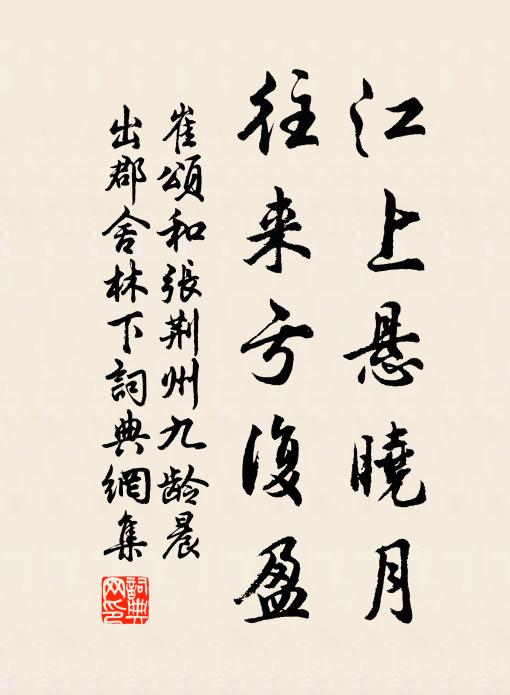 江上悬曉月
往来亏復盈
崔頌和張荆州九龄晨
出郡舍林下詞典網集
詞典
网印